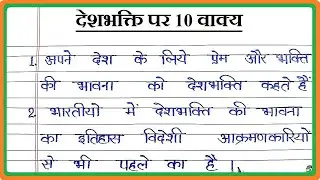 देशभक्ति पर 10 वाक्य
1. अपने देश के लिये प्रेम और भक्ति
की भावना को देशभक्ति कहते हैं
2. भारतीयो में देशभक्ति की भावना
का इतिहास विदेशी आक्रमणकारियों
से भी पहले का है।